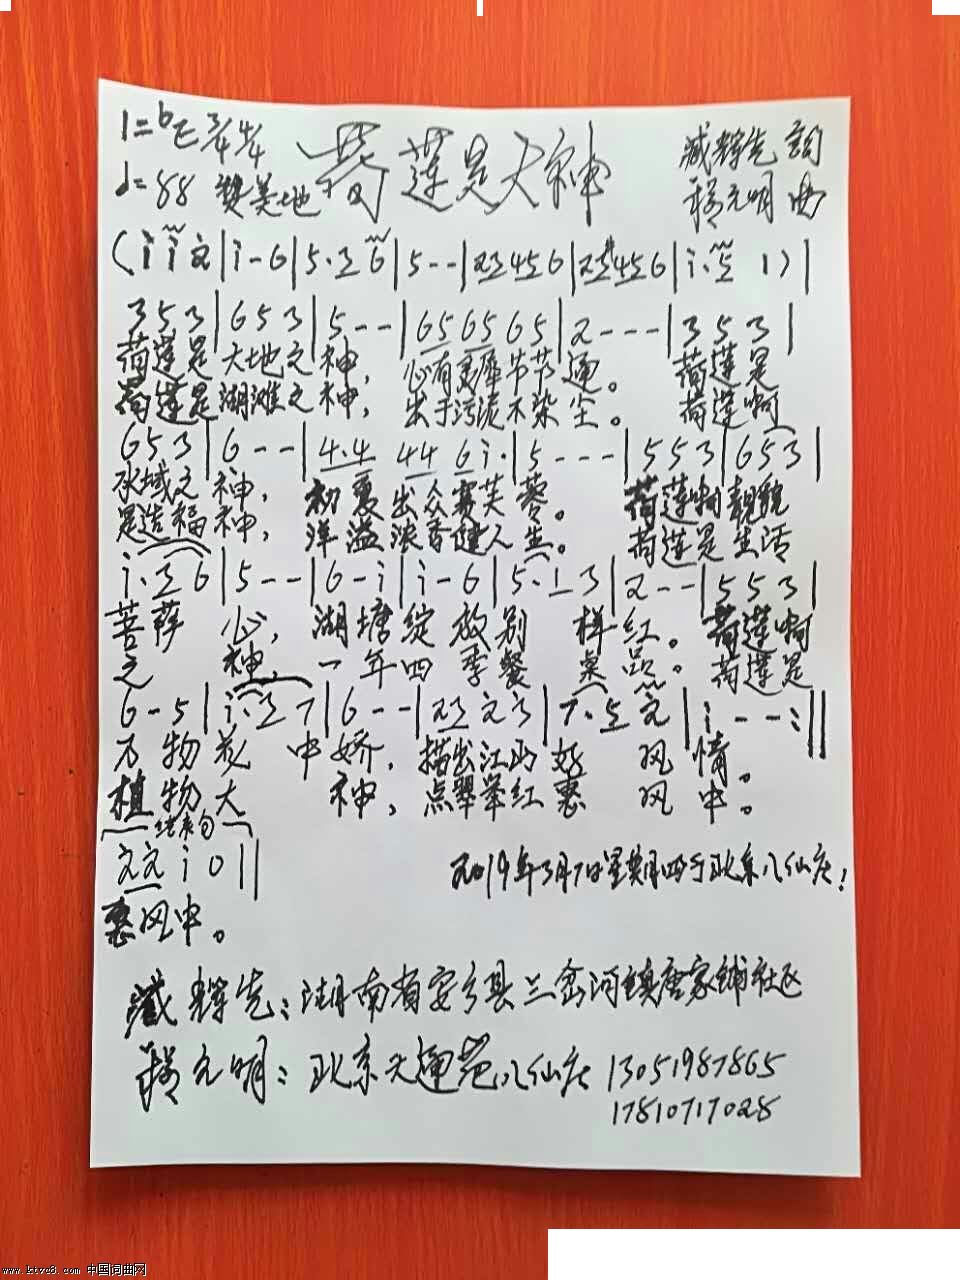 1=bE 3/4 4/4 荷莲是大神 臧辉先 词
♩=88 赞美地 程元明 曲
(i i 2|i-6|5·3 6|5--|23456|23456|i·5 1)|
353|653|5--|65 65 65|2---|353|
荷莲是大地之神，心有灵犀节节通。荷莲是
荷莲是湖滩之神，出于污泥不染尘。荷莲啊
653|6--|4·4 44 6i·|5---|553|653|
水域之神，初夏出众赛芙蓉。荷莲啊靓貌
是造福神，洋溢浓香健人生。荷莲是生活
i·36|5--|6-i|i-6|5·13|2--|553|
菩萨心，湖塘绽放别样红。荷莲啊
之神，一年四季餐桌品。荷莲是
6-5|i·27|6--|23 2 3|7·5 2|i--:||
万物花中娇，描出江山好风情。
植物大神，点翠举红惠风中。
结束句
22i0||
惠风中。
2019年3月7日星期四于北京八仙庄!
臧辉先：湖南省安乡县三岔河镇唐家铺社区
程元明：北京天通苑八仙庄 13051987865
17810717028
www.ktvc8.com 中国词曲网